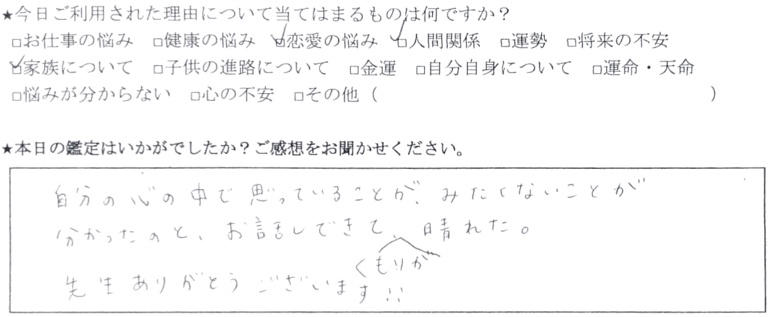 ★今日ご利用された理由について当てはまるものは何ですか？
□お仕事の悩み □健康の悩み ☑恋愛の悩み ☑人間関係 □運勢 □将来の不安
☑家族について □子供の進路について □金運 □自分自身について □運命・天命
□悩みが分からない □心の不安 □その他（ ）
★本日の鑑定はいかがでしたか？ご感想をお聞かせください。
自分の心の中で思っていることが、みたくないことが
分かったのと、お話しできて、晴れた。
くもりが
先生ありがとうございます!!